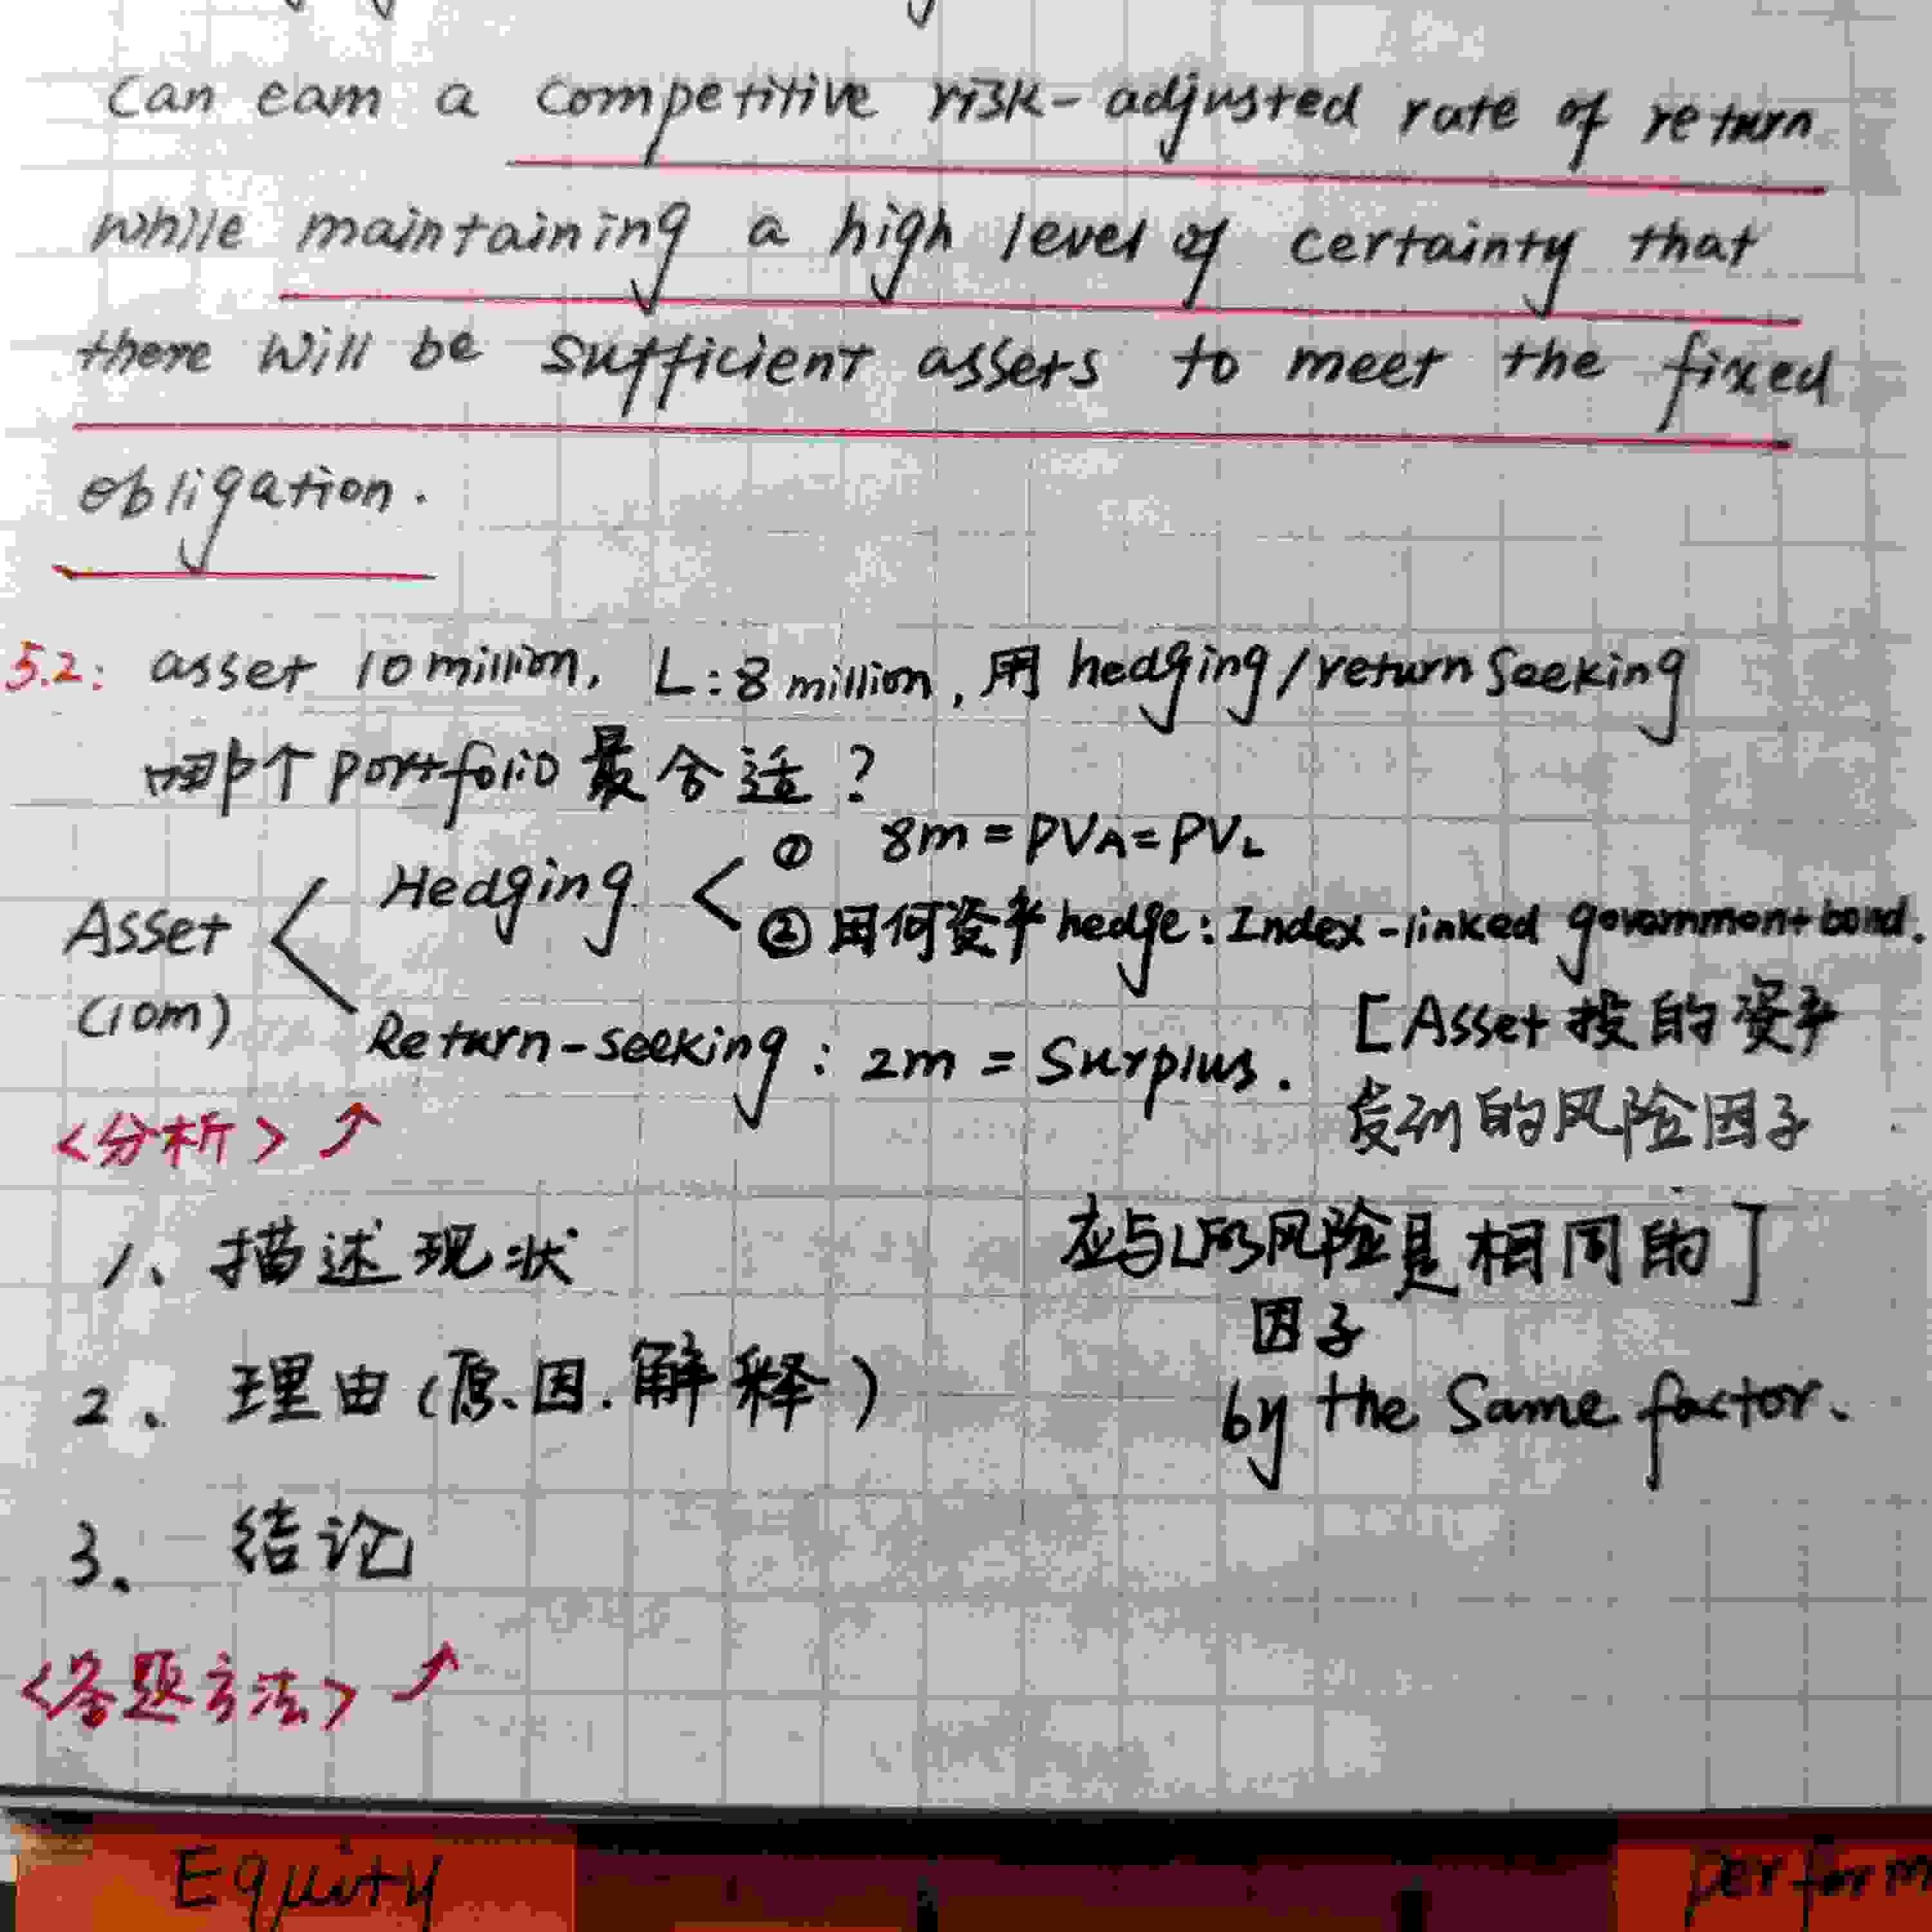 can earn a competitive risk-adjusted rate of return
while maintaining a high level of certainty that
there will be sufficient assets to meet the fixed
obligation.
5.2: asset 10 million, L:8 million, 用 hedging/return seeking
哪个 portfolio 最合适?
Asset
(10m)
Hedging
① 8m = PVA = PVL
② 用何资产 hedge: Index-linked government bond.
Return-seeking : 2m = Surplus.
[Asset 投的资产
受到的风险因子
应与L的风险是相同的]
因子
by the same factor.
<分析>
1、描述现状
2、理由(原因.解释)
3、结论
<答题方法>
Equity
perform